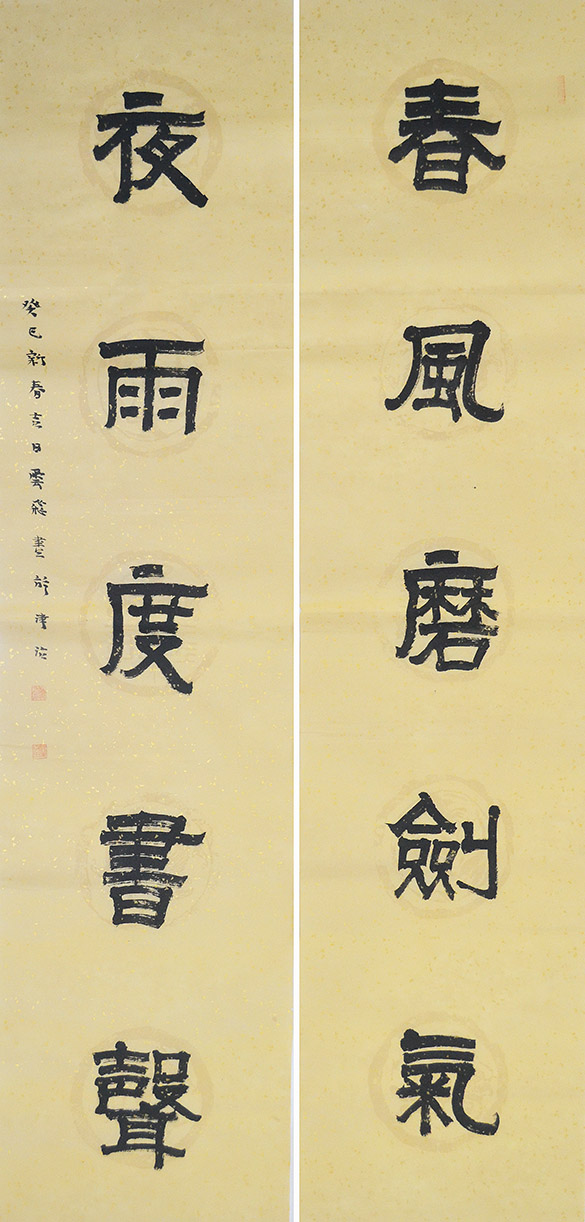 春風磨劍氣
夜雨度書聲
癸巳新春吉日雲飛書於津沽